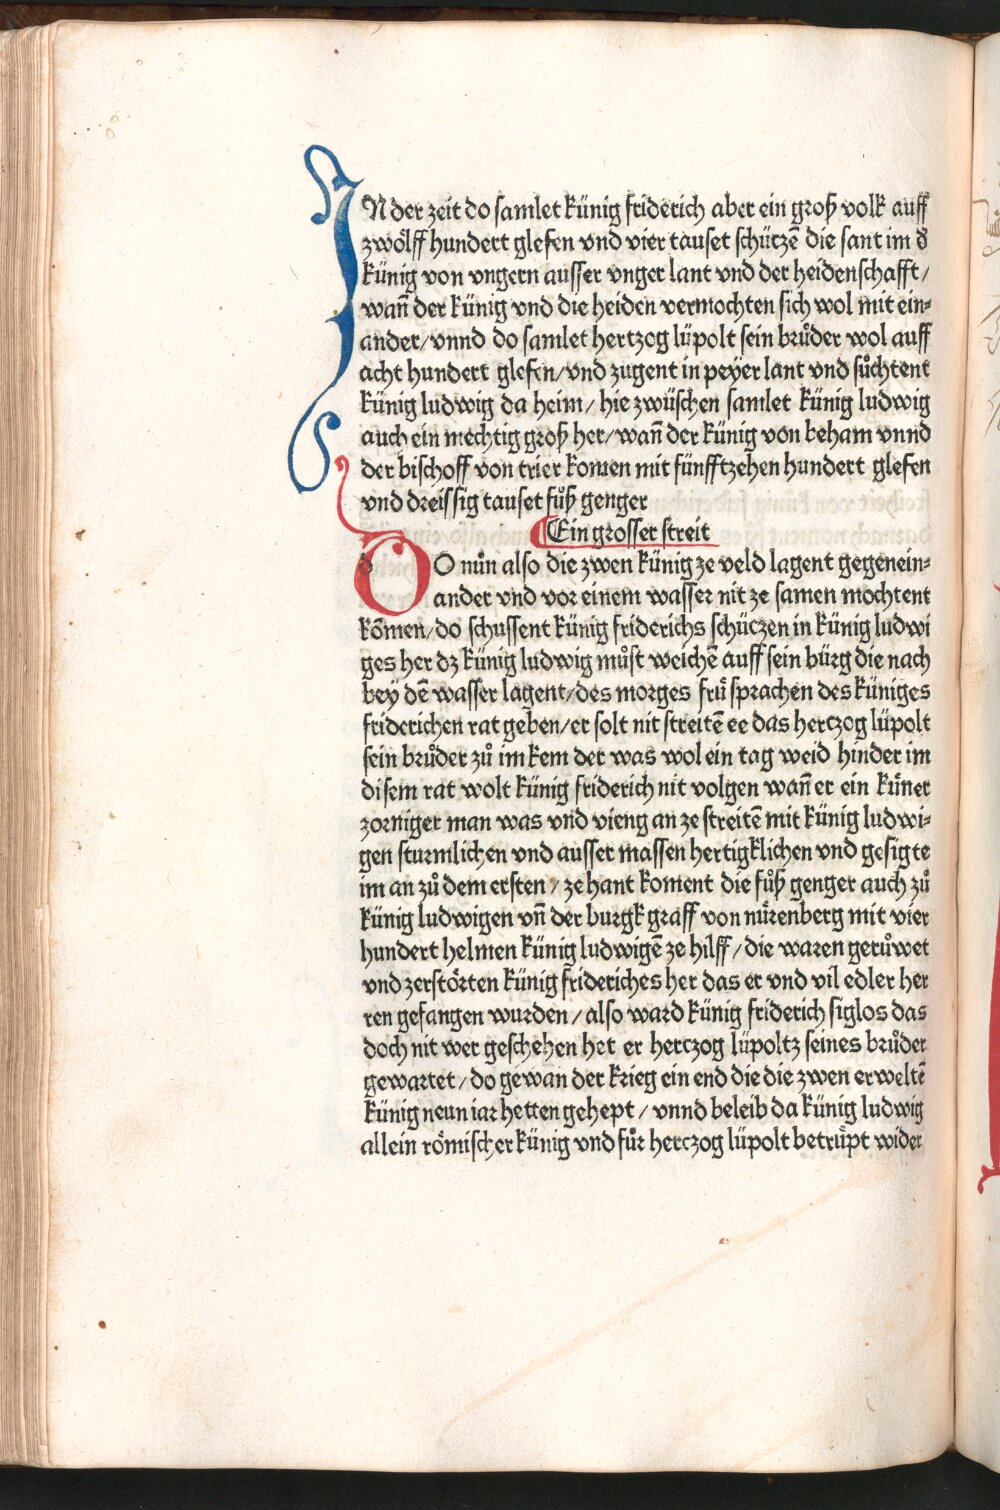 IN der zeit do samlet künig friderich aber ein groß volk auff
zwölff hundert glefen vnd vier tauset schüczē die sant im d̕
künig von vngern ausser vnger lant vnd der heidenschafft/
wañ der künig vnd die heiden vermochten sich wol mit ein⸗
ander/vnnd do samlet hertzog lüpolt sein brůder wol auff
acht hundert glefen/vnd zugent in peyer lant vnd sůchtent
künig ludwig da heim/hie zwüschen samlet künig ludwig
auch ein mechtig groß her/wañ der künig von beham vnnd
der bischoff von trier komen mit fünfftzehen hundert glefen
vnd dreissig tauset fůß genger
Ein grosser streit
DO nůn also die zwen künig ze veld lagent gegenein⸗
ander vnd vor einem wasser nit ze samen mochtent
kōmen/do schussent künig friderichs schüczen in künig ludwi
ges her dz künig ludwig můst weichē auff sein bürg die nach
bey dē wasser lagent/des morges frü sprachen des küniges
friderichen rat geben/er solt nit streitē ee das herczog lüpolt
sein brůder zů im kem der was wol ein tag weid hinder im
disem rat wolt künig friderich nit volgen wañ er ein küner
zorniger man was vnd vieng an ze streitē mit künig ludwi⸗
gen sturmlichen vnd ausser massen hertigklichen vnd gesigte
im an zů dem ersten/ze hant koment die fůß genger auch zů
künig ludwigen vñ der burgk graff von nürenberg mit vier
hundert helmen künig ludwigē ze hilff/die waren gerůwet
vnd zerstörten künig frideriches her das er vnd vil edler her
ren gefangen wurden/also ward künig friderich siglos das
doch nit wer geschehen het er herczog lüpoltz seines brůder
gewartet/do gewan der krieg ein end die die zwen erweltē
künig neun iar hetten gehept/vnnd beleib da künig ludwig
allein römischer künig vnd fůr herczog lüpolt betrüpt wider